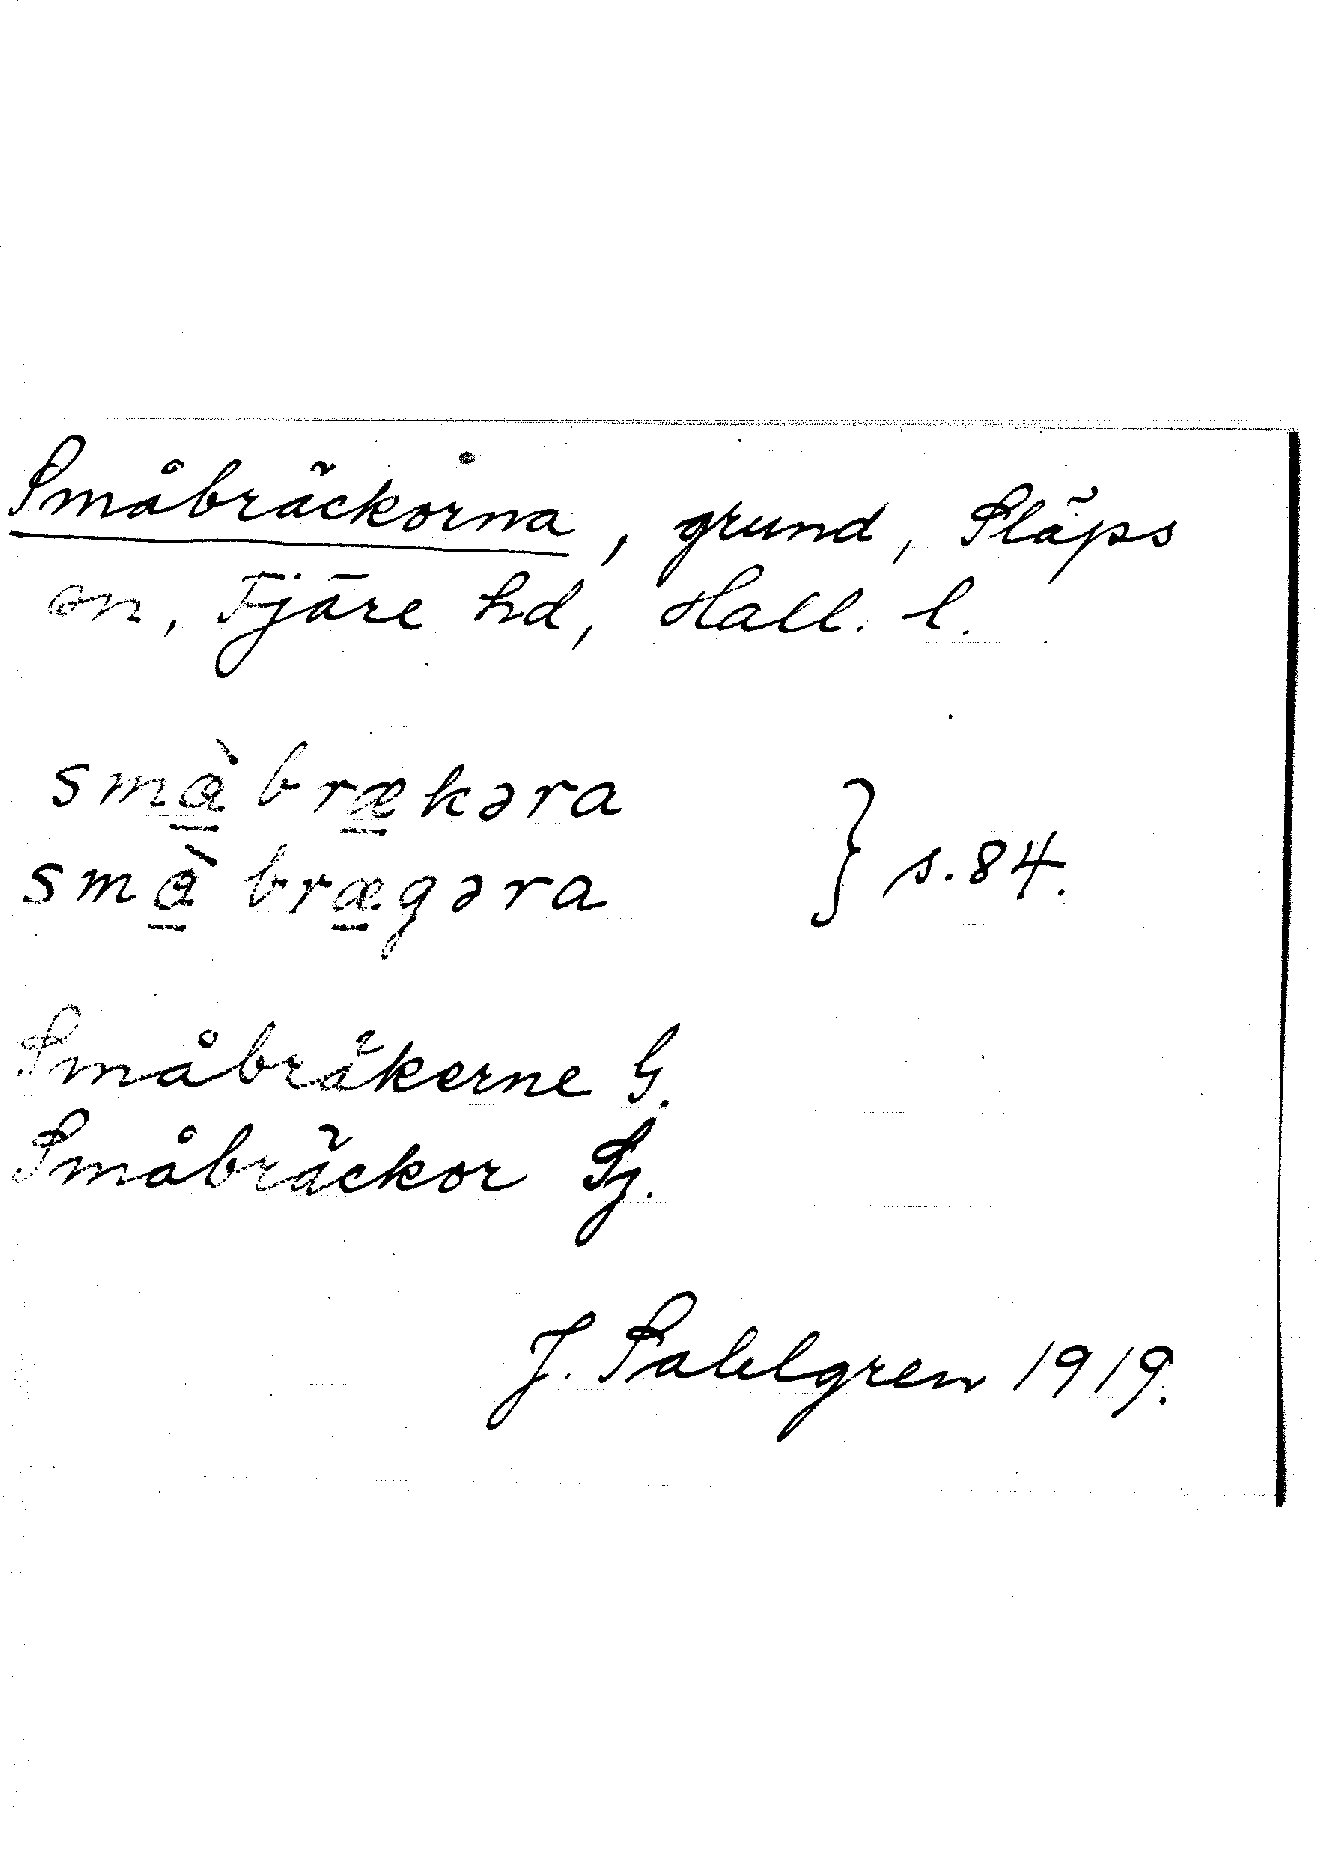 Småbräckorna, grund, Släps
sn, Fjäre hd, Hall. l.
smὰbrækəra
smὰbrægəra } s.84.
Småbräkerne G.
Småbräckor Sj.
J. Sahlgren 1919.